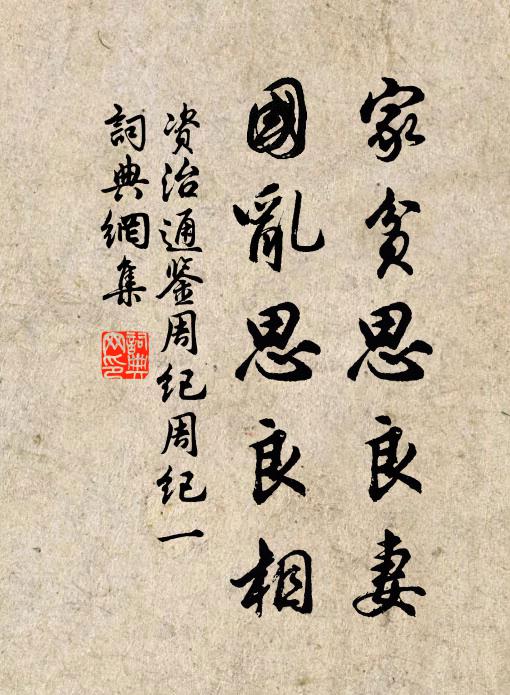 家贫思良妻
國亂思良相
资治通鉴周纪周纪一
詞典網集
詞典
网印